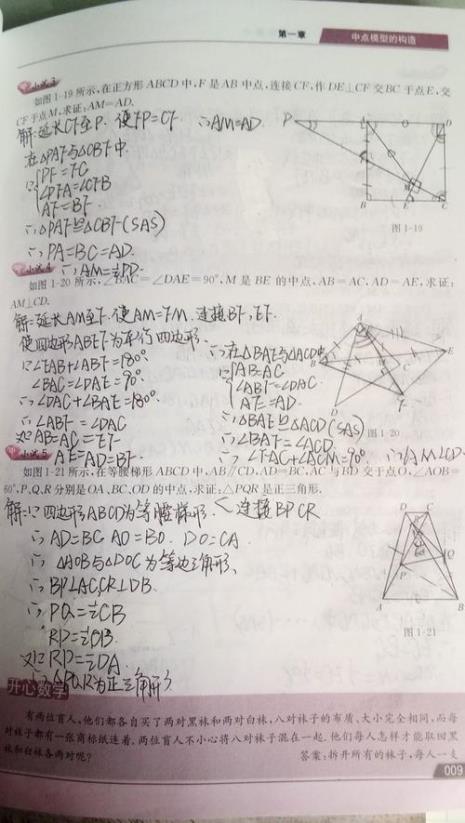 第一章 中点模型的构造
小试 3
如图 1-19 所示,在正方形 ABCD 中,F 是 AB 中点,连接 CF,作 DE⊥CF 交 BC 于点 E,交
CF 于点 M,求证:AM=AD.
解:延长CF至P.使FP=CF. ∴AM=AD.
在△PAF与△CBF中.
∵ PF=FC
∠PFA=∠CFB
AF=BF
∴△PAF≌△CBF(SAS)
∴PA=BC=AD.
∴AM=½PD.
P
A
D
F
M
B
E
C
图 1-19
小试 4
如图 1-20 所示,∠BAC=∠DAE=90°,M 是 BE 的中点,AB=AC,AD=AE,求证:
AM⊥CD.
解:延长AM至F.使AM=FM.连接BF,EF.
使四边形ABEF为平行四边形.
∵∠EAB+∠ABF=180°
∠BAC=∠DAE=90°.
∴∠DAC+∠BAE=180°
∴∠ABF=∠DAC
又∵AB=AC=EF
AE=AD=BF.
∴在△BAF与△ACD中
∵ AB=AC
∠ABF=∠DAC
AE=AD.
∴△BAF≌△ACD(SAS)
∴∠BAF=∠ACD.
∴AM⊥CD.
图 1-20
小试 5
如图 1-21 所示,在等腰梯形 ABCD 中,AB∥CD,AD=BC,AC 与 BD 交于点 O,∠AOB=
60°,P、Q、R 分别是 OA、BC、OD 的中点,求证:△PQR 是正三角形.
解:∵四边形ABCD为等腰梯形. 连接BP CR
∴AD=BC AO=BO. DO=CA
∴△AOB与△DOC为等边三角形.
∴BP⊥AC,CR⊥DB.
∴PQ=½CB
又∵RP=½DA.
∴△PQR为正三角形.
D
C
R
O
Q
P
A
B
图 1-21
开心数学
有两位盲人,他们都各自买了两对黑袜和两对白袜,八对袜子的布质、大小完全相同,而每
对袜子都有一张商标纸连着,两位盲人不小心将八对袜子混在一起.他们每人怎样才能取回黑
袜和白袜各两对呢? 答案:拆开所有的袜子,每人一支
009